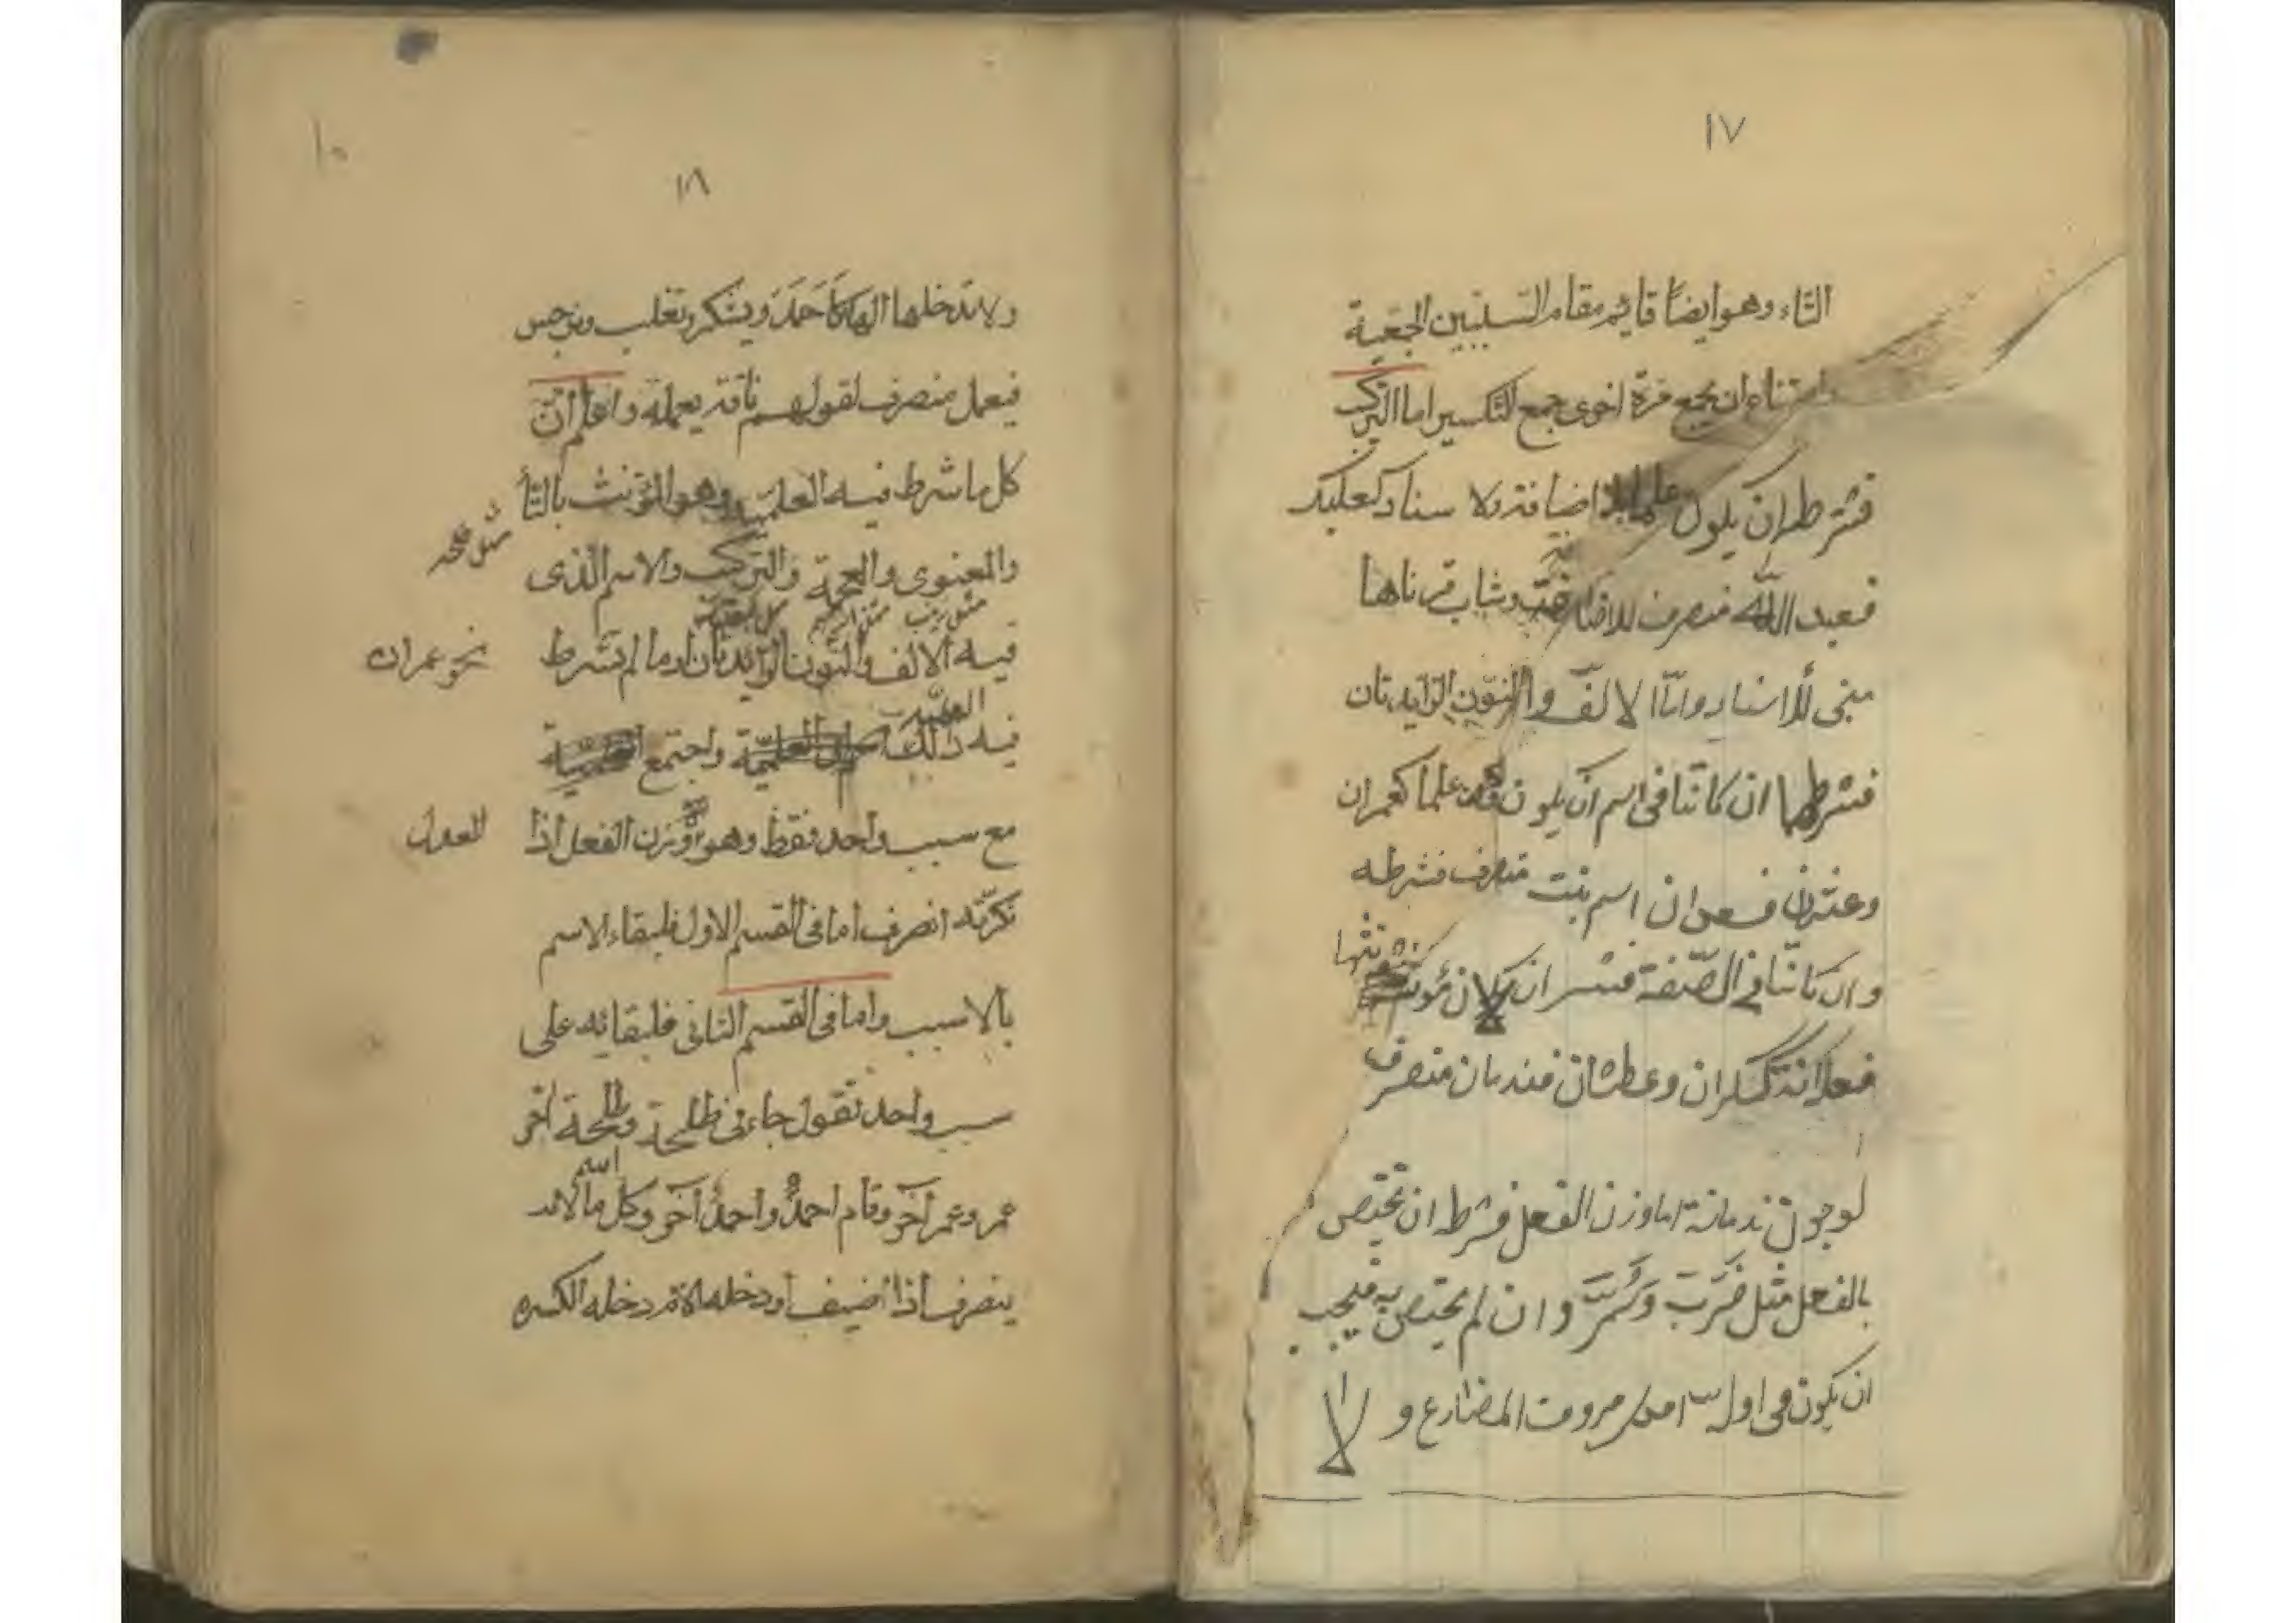 ١٧
التاء وهو ايضًا قايم مقام السببين الجمعية
وامتناع ان يجمع مرة اخرى جمع التكسير اما التركيب
فشرطه ان يكون علما بلا اضافة ولا اسناد كبعلبك
فعبد الله منصرف للاضافة وشاب قرناها
مبنى للاسناد واما الالف والنون الزايدتان
فشرطها ان كانتا فى اسم ان يكون علما كعمران
وعثمن فسعدان اسم بنت منصرف
وان كانتا فى الصفة فشر ان لا يكون مؤنثها
فعلانة كسكران وعطشان فندمان منصرف
لوجود ندمانة اما وزن الفعل فشرط ان يختص
بالفعل مثل ضرب وشمر وان لم يختص به فيجب
ان يكون فى اوله احدى حروف المضارع و لا
١٨
١٠
ولا يدخلها الهاء كاحمد ويشكر وتغلب ونرجس
فيعمل منصرف لقولهم ناقة يعملة واعلم ان
كل ما شرط فيه العلمية وهو المؤنث بالتأ
مثل طلحة
والمعنوى والعجمة والتركيب والاسم الذى
مثل زينب
فيه الالف والنون الزايدتان او ما لم يشرط
نحو عمران
فيه ذلك واجتمع
العلمية
مع سبب واحد فقط وهو ووزن الفعل اذا
العدل
نكرته انصرف اما فى القسم الاول فلبقاء الاسم
بلا سبب واما فى القسم الثانى فلبقائه على
سبب واحد تقول جاءنى طلحة وطلحة اخر
عمر وعمر آخر وقام احمد واحمد آخر وكل ما لا
اسم
ينصرف اذا اضيف او دخله اللام دخله الكسره